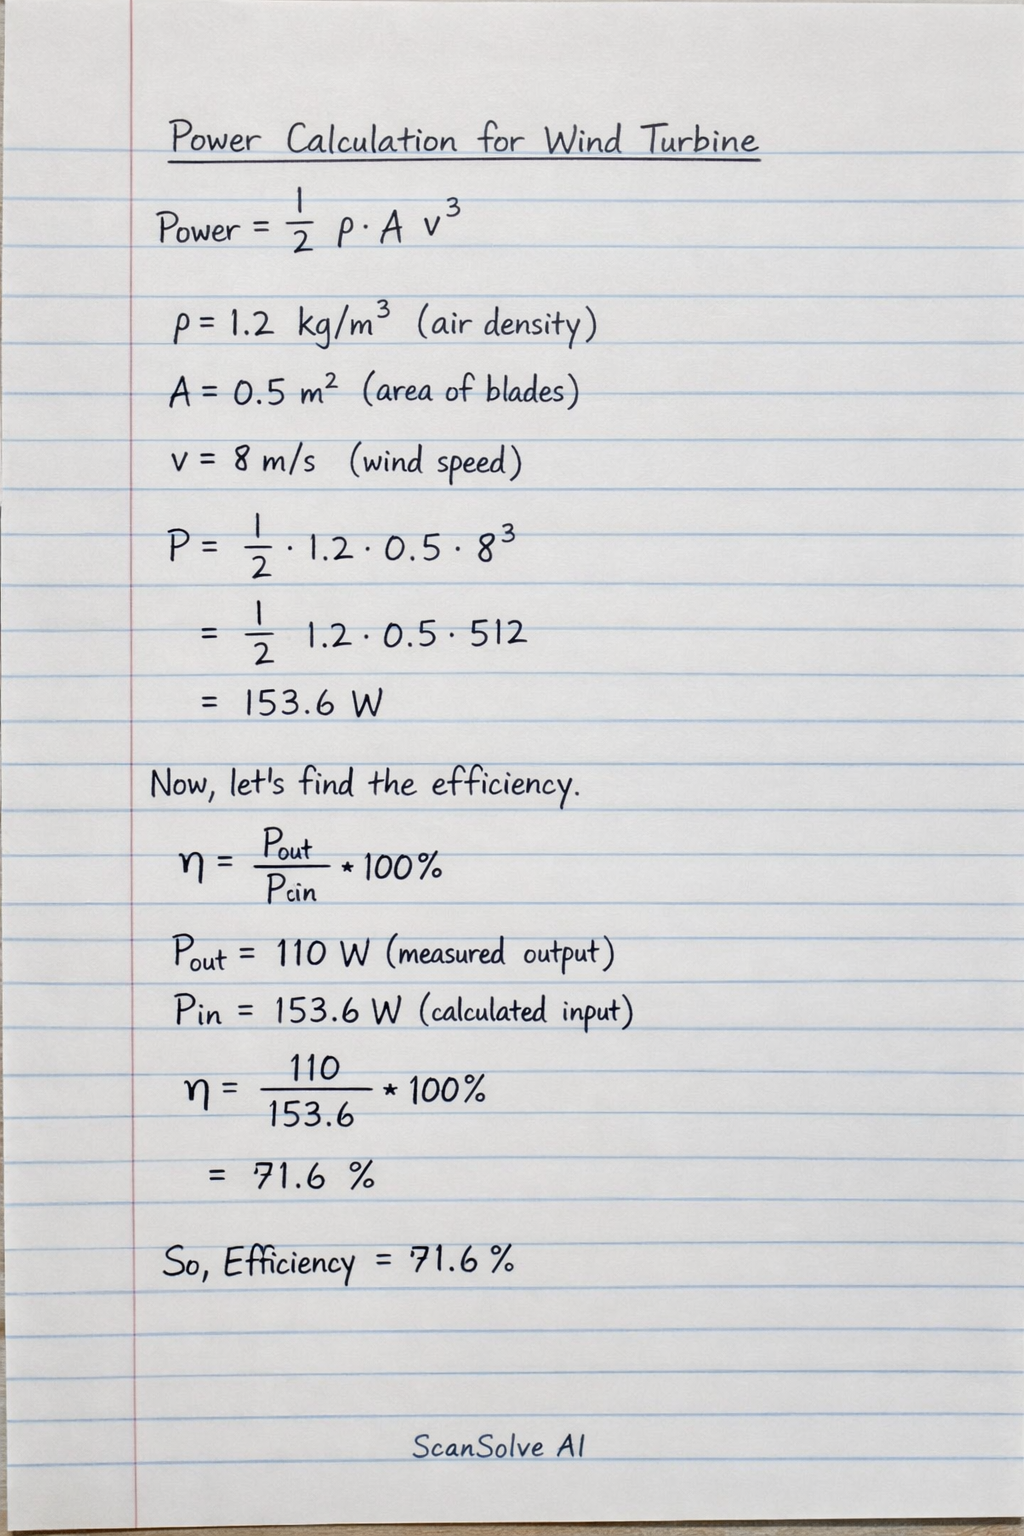 Power Calculation for Wind Turbine
Power = 1/2 ρ · A v³
ρ = 1.2 kg/m³ (air density)
A = 0.5 m² (area of blades)
v = 8 m/s (wind speed)
P = 1/2 · 1.2 · 0.5 · 8³
= 1/2 1.2 · 0.5 · 512
= 153.6 W
Now, let's find the efficiency.
η = Pout/Pcin * 100%
Pout = 110 W (measured output)
Pin = 153.6 W (calculated input)
η = 110/153.6 * 100%
= 71.6 %
So, Efficiency = 71.6 %
ScanSolve AI